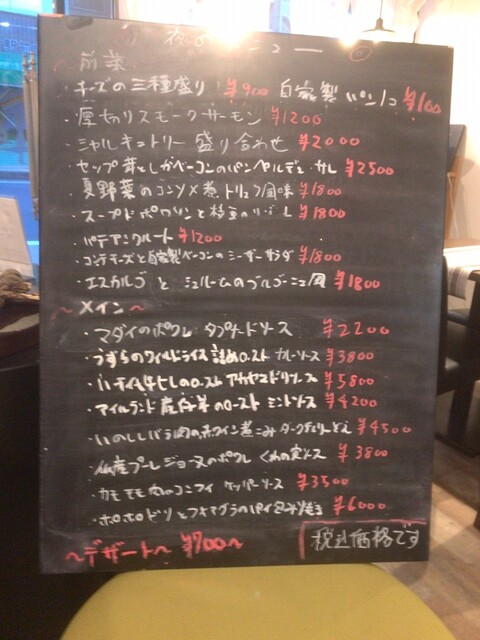 夜のメニュー
〜前菜
・チーズの三種盛り ¥900 自家製パン1コ ¥100
・厚切りスモークサーモン ¥1200
・シャルキュトリー盛り合わせ ¥2000
・セップ茸としかベーコンのパンペルデュ サレ ¥2500
・夏野菜のコンソメ煮トリュフ風味 ¥1800
・スープドポワソンと枝豆のリゾット ¥1800
・パテアンクルート ¥1200
・コンテチーズと自家製ベーコンのシーザーサラダ ¥1800
・エスカルゴと ジュルームのブルゴーニュ風 ¥1800
〜メイン〜
・マダイのポワレ タプナードソース ¥2200
・うずらのワイルドライス詰めロースト カレーソース ¥3800
¥5800
・アイルランド産仔羊のロースト ミントソース ¥4200
・いのししバラ肉の赤ワイン煮こみ ダークチェリーぞえ ¥4500
・仏産プーレジョーヌのポワレ くわの実ソース ¥3800
・カモモモ肉のコンフィ ケッパーソース ¥3500
・ポポポドリとフォアグラのパイ包み焼き ¥6000
〜デザート〜 ¥700〜
税込価格です